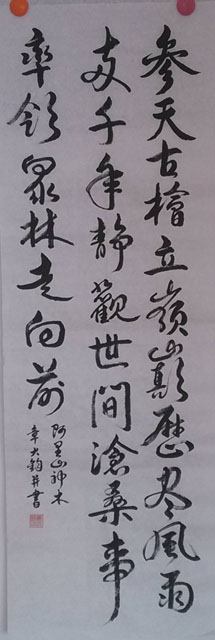 參天古檜立嶺巔歷盡風雨
千年靜觀世間滄桑事
率領眾林走向前
阿里山神木
章大鈞并書